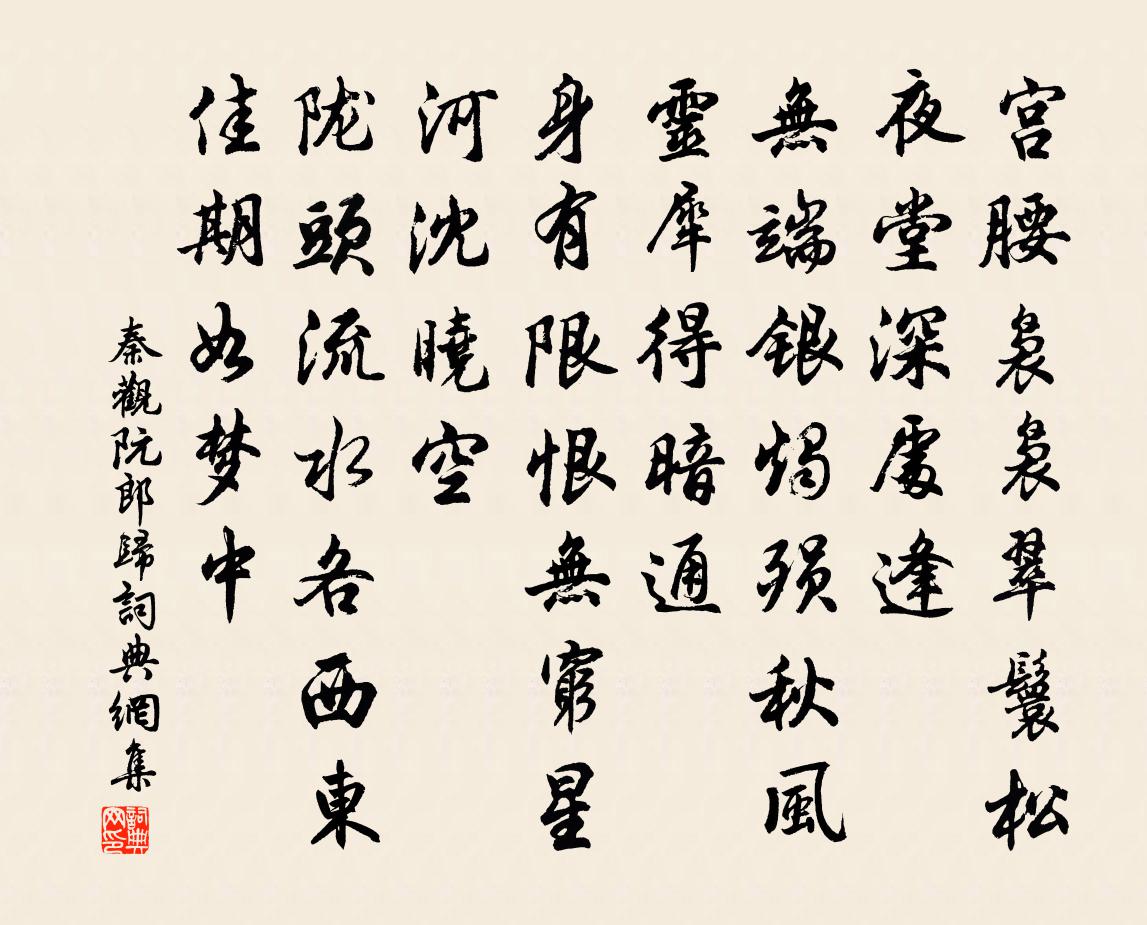 宫腰袅袅翠鬟松
夜堂深處逢
無端銀燭殒秋風
靈犀得暗通
身有限恨無窮星
河沈曉空
陇頭流水各西東
佳期如梦中
秦觀阮郎歸詞典網集
詞典网印